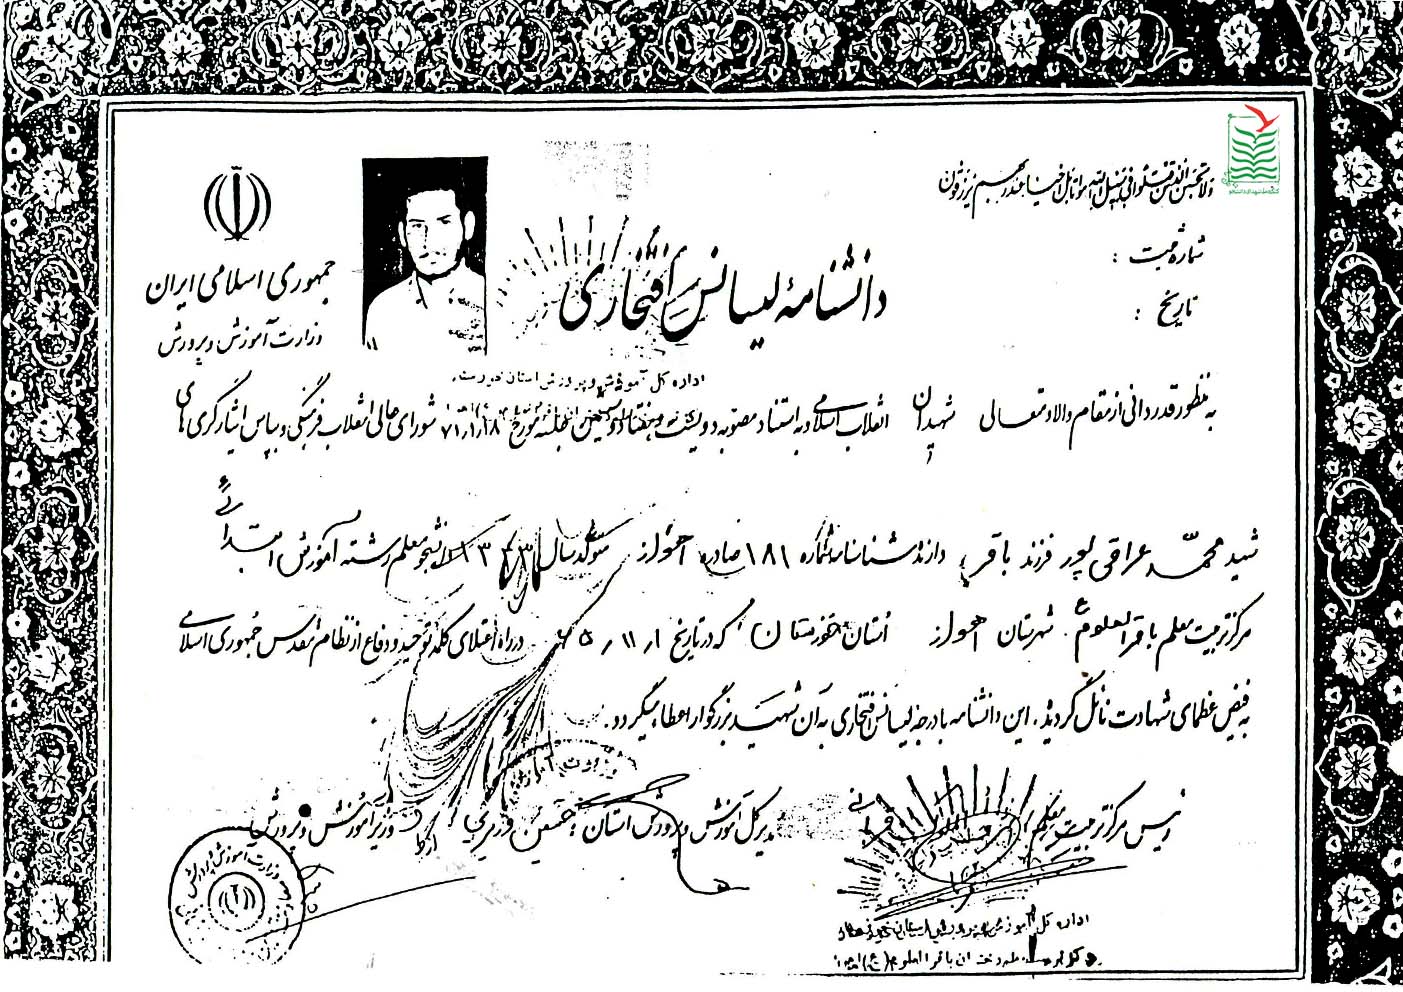 ولا تحسبن الذین قتلوا فی سبیل الله امواتا بل احیاء عند ربهم یرزقون
شماره ثبت :
تاریخ :
جمهوری اسلامی ایران
وزارت آموزش و پرورش
دانشنامهٔ لیسانس افتخاری
اداره کل آموزش و پرورش استان
به منظور قدردانی از مقام والا و متعالی شهیدان انقلاب اسلامی و به استناد مصوبه دویست و هفتاد و جلسه مورخ ۷۱٫۱٫۱۸ شورای عالی انقلاب فرهنگی و بپاس ایثارگری های
شهید محمد عراقی پور فرزند باقر دارندهٔ شناسنامه شماره ۱۸۱ صادره اهواز متولد سال دانشجو معلم رشته آموزش ابتدائی
مرکز تربیت معلم باقرالعلوم ع شهرستان اهواز استان خوزستان که در تاریخ ۶۵٫۱۱٫۱ در راه اعتلای کلمه توحید و دفاع از نظام مقدس جمهوری اسلامی
به فیض عظمای شهادت نائل گردید. این دانشنامه با درجه لیسانس افتخاری به آن شهید بزرگوار اعطاء میگردد.
رئیس مرکز تربیت معلم
مدیرکل آموزش و پرورش استان : حسین وزیری
وزیر آموزش و پرورش
وزارت آموزش و پرورش
اداره کل آموزش و پرورش استان خوزستان
باقرالعلوم (ع) اهواز